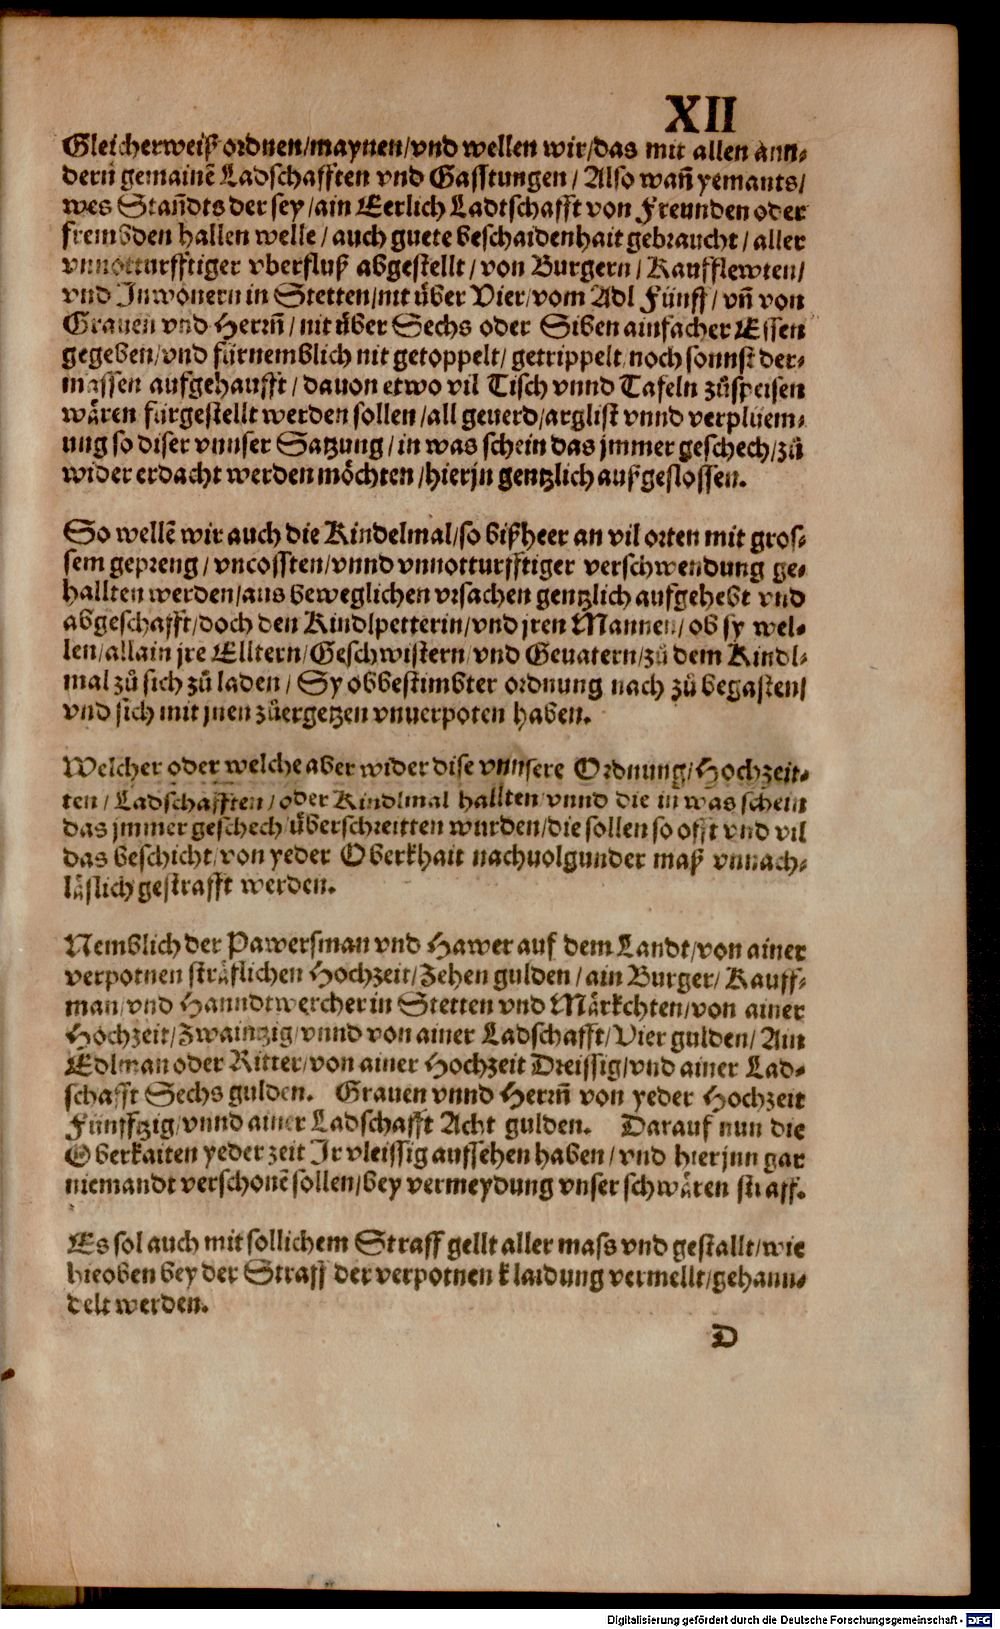 XII
Gleicherweiß ordnen/maynen/vnd wellen wir/das mit allen ann⸗
dern gemainē Ladschafften vnd Gasstungen / Also wañ yemants/
wes Stañdts der sey/ain Eerlich Ladtschafft von Freunden oder
frembden hallen welle / auch guete beschaidenhait gebraucht / aller
vnnotturfftiger vberfluß abgestellt / von Burgern / Kaufflewten/
vnd Inwonern in Stetten/nit über Vier/vom Adl Fünff / vñ von
Grauen vnd Herrñ / nit über Sechs oder Siben ainfacher Essen
gegeben/vnd fürnemblich nit getoppelt/ getrippelt/noch sonnst der⸗
massen aufgehaufft / dauon etwo vil Tisch vnnd Tafeln zůspeisen
wären fürgestellt werden sollen /all geuerd/arglist vnnd verplüem⸗
ung so diser vnnser Satzung / in was schein das jmmer geschech/zů
wider erdacht werden möchten /hierjn gentzlich außgeslossen.
So wellē wir auch die Kindelmal/so bißheer an vil orten mit gros⸗
sem gepreng / vncossten/vnnd vnnotturfftiger verschwendung ge⸗
hallten werden/aus beweglichen vrsachen gentzlich aufgehebt vnd
abgeschafft/doch den Kindlpetterin/vnd jren Mannen/ ob sy wel⸗
len/allain jre Elltern/Geschwistern/vnd Geuatern/zů dem Kindl⸗
mal zů sich zů laden / Sy obbestimbter ordnung nach zů begasten/
vnd sich mit jnen zůergetzen vnuerpoten haben.
Welcher oder welche aber wider dise vnnsere Ordnung/Hochzeit⸗
ten / Ladschafften / oder Kindlmal hallten/vnnd die in was schein
das jmmer geschech/überschreitten wurden/die sollen so offt vnd vil
das beschicht/von yeder Oberkhait nachuolgunder maß vnnach⸗
läslich gestrafft werden.
Nemblich der Pawersman vnd Hawer auf dem Landt/von ainer
verpotnen sträflichen Hochzeit/Zehen gulden / ain Burger/ Kauff⸗
man/vnd Hanndtwercher in Stetten vnd Märkchten/von ainer
Hochzeit/Zwaintzig/vnnd von ainer Ladschafft/Vier gulden/ Ain
Edlman oder Ritter/von ainer Hochzeit Dreissig/vnd ainer Lad⸗
schafft Sechs gulden. Grauen vnnd Herrñ von yeder Hochzeit
Fünfftzig/vnnd ainer Ladschafft Acht gulden. Darauf nun die
Oberkaiten yeder zeit Ir vleissig aufsehen haben / vnd hierjnn gar
niemandt verschonē sollen/bey vermeydung vnser schwären straff.
Es sol auch mit sollichem Straff gellt aller mass vnd gestallt/wie
hieoben bey der Straff der verpotnen klaidung vermellt/gehann⸗
delt werden.
D
Digitalisierung gefördert durch die Deutsche Forschungsgemeinschaft - DFG